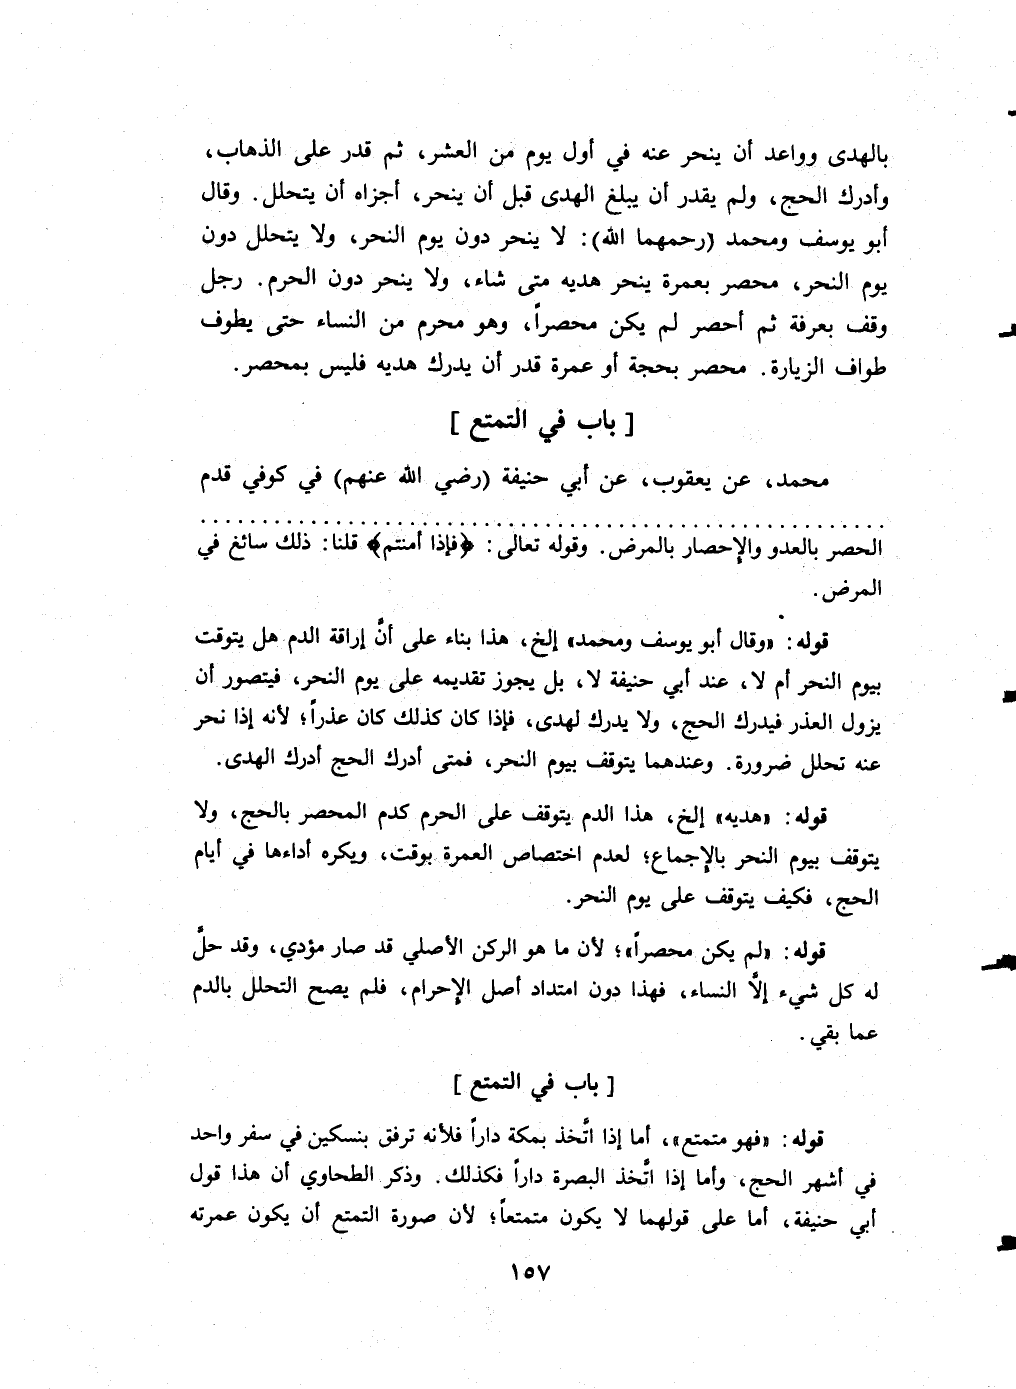 بالهدى وواعد أن ينحر عنه في أول يوم من العشر، ثم قدر على الذهاب،
وأدرك الحج، ولم يقدر أن يبلغ الهدى قبل أن ينحر، أجزاه أن يتحلل. وقال
أبو يوسف ومحمد (رحمهما الله): لا ينحر دون يوم النحر، ولا يتحلل دون
يوم النحر، محصر بعمرة ينحر هديه متى شاء، ولا ينحر دون الحرم. رجل
وقف بعرفة ثم أحصر لم يكن محصراً، وهو محرم من النساء حتى يطوف
طواف الزيارة. محصر بحجة أو عمرة قدر أن يدرك هديه فليس بمحصر.
[ باب في التمتع ]
محمد، عن يعقوب، عن أبي حنيفة (رضي الله عنهم) في كوفي قدم
الحصر بالعدو والإحصار بالمرض. وقوله تعالى: ﴿فإذا أمنتم﴾ قلنا: ذلك سائغ في
المرض.
قوله: «وقال أبو يوسف ومحمد» إلخ، هذا بناء على أنَّ إراقة الدم هل يتوقت
بيوم النحر أم لا، عند أبي حنيفة لا، بل يجوز تقديمه على يوم النحر، فيتصور أن
يزول العذر فيدرك الحج، ولا يدرك لهدى، فإذا كان كذلك كان عذراً؛ لأنه إذا نحر
عنه تحلل ضرورة. وعندهما يتوقف بيوم النحر، فمتى أدرك الحج أدرك الهدى.
قوله: «هديه» إلخ، هذا الدم يتوقف على الحرم كدم المحصر بالحج، ولا
يتوقف بيوم النحر بالإجماع؛ لعدم اختصاص العمرة بوقت، ويكره أداءها في أيام
الحج، فكيف يتوقف على يوم النحر.
قوله: «لم يكن محصراً»؛ لأن ما هو الركن الأصلي قد صار مؤدي، وقد حلَّ
له كل شيء إلَّا النساء، فهذا دون امتداد أصل الإحرام، فلم يصح التحلل بالدم
عما بقي.
[ باب في التمتع ]
قوله: «فهو متمتع»، أما إذا اتَّخذ بمكة داراً فلأنه ترفق بنسكين في سفر واحد
في أشهر الحج، وأما إذا اتَّخذ البصرة داراً فكذلك. وذكر الطحاوي أن هذا قول
أبي حنيفة، أما على قولهما لا يكون متمتعاً؛ لأن صورة التمتع أن يكون عمرته
١٥٧